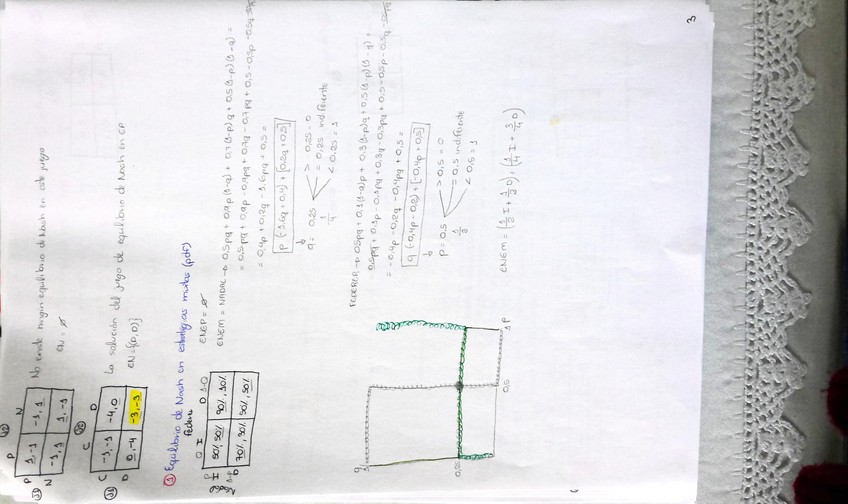 P N
P 1,-1 -1,1
N -1,1 1,-1
No existe ningún equilibrio de Nash en este juego
EN = ø
C D
C -1,-1 -4,0
D 0,-4 -3,-3
La solución del juego de equilibrio de Nash en EP
EN={(D,D)}
① Equilibrio de Nash en estrategias mixtas (pdf)
Federer
q I D 1-q
I 50%,50% 90%,10%
1-p D 70%,30% 50%,50%
ENEP = ø
ENEM = NADAL → 0,5pq + 0,9p(1-q) + 0,7(1-p)q + 0,5(1-p)(1-q) =
= 0,5pq + 0,9p - 0,9pq + 0,7q - 0,7pq + 0,5 - 0,5p - 0,5q
= 0,4p + 0,2q - 1,6pq + 0,5 =
p(-1,6q + 0,4) + [0,2q + 0,5]
q = 0,25
1/4
> 0,25 = 0
= 0,25 indiferente
< 0,25 = 1
FEDERER → 0,5pq + 0,1(1-q)p + 0,3(1-p)q + 0,5(1-p)(1-q) =
0,5pq + 0,1p - 0,1pq + 0,3q - 0,3pq + 0,5 - 0,5p - 0,5q
= -0,4p - 0,2q - 0,4pq + 0,5 =
q(-0,4p - 0,2) + [-0,4p + 0,5]
p = 0,5
1/2
> 0,5 = 0
= 0,5 indiferente
< 0,5 = 1
q
1
0,25
0,5
1 p
ENEM = (1/2 I + 1/2 D), (1/4 I + 3/4 D)
3